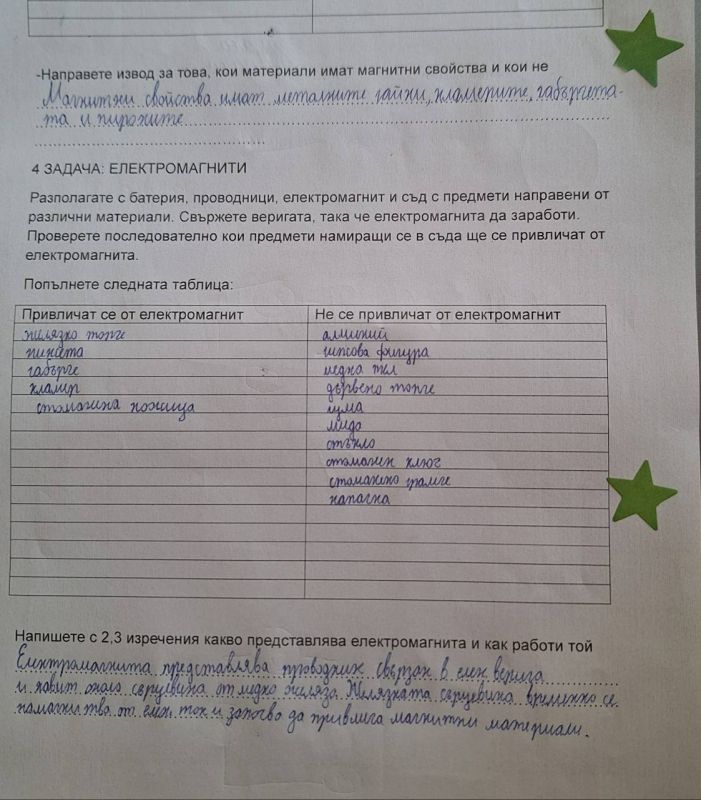 -Направете извод за това, кои материали имат магнитни свойства и кои не
Магнитни свойства имат металните гайки, кламерите, габърчета-
та и пироните
4 ЗАДАЧА: ЕЛЕКТРОМАГНИТИ
Разполагате с батерия, проводници, електромагнит и съд с предмети направени от
различни материали. Свържете веригата, така че електромагнита да заработи.
Проверете последователно кои предмети намиращи се в съда ще се привличат от
електромагнита.
Попълнете следната таблица:
Привличат се от електромагнит
Не се привличат от електромагнит
желязко топче
алминий
гипсова фигура
габърче
медна тел
кламер
дървено топче
стоманена ножица
гума
мида
стъкло
стоманен ключ
стоманено
капачка
Напишете с 2,3 изречения какво представлява електромагнита и как работи той
Електромагнита представлява проводник свързан в елек верига
и навит около сърцевина от медко желязо. Желязката сърцевина временно се
намагнитва от елек. ток и започва да привлича магнитни материали.